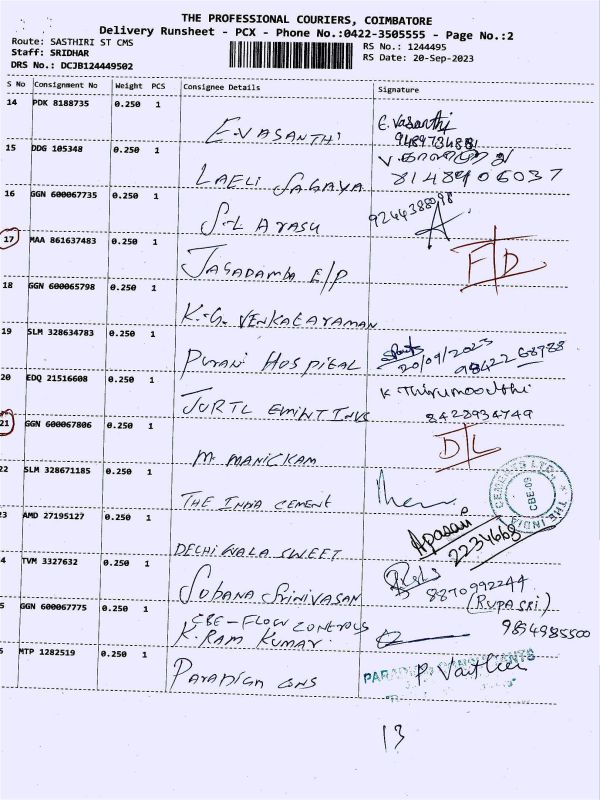 THE PROFESSIONAL COURIERS, COIMBATORE
Delivery Runsheet - PCX - Phone No.:0422-3505555 - Page No.:2
Route: SASTHIRI ST CMS
RS No.: 1244495
Staff: SRIDHAR
RS Date: 20-Sep-2023
DRS No.: DCJB124449502
S No Consignment No Weight PCS Consignee Details Signature
14 PDK 8188735 0.250 1
E.VASANTHI E.Vasanthi
15 DDG 105348 0.250 1
LAELI SAGAYA 8148906037
16 GGN 600067735 0.250 1
S.L ARASU 9244388098
17 MAA 861637483 0.250 1
JAGADAMBA E/P F/D
18 GGN 600065798 0.250 1
K.G. VENKATARAMAN
19 SLM 328634783 0.250 1
PURANI HOSPITAL 20/09/2023
98422 68788
20 EDQ 21516608 0.250 1
K Thirumoorthi
8428934749
21 GGN 600067806 0.250 1
M. MANICKAM D/L
22 SLM 328671185 0.250 1
THE INDIA CEMENT THE INDIA CEMENTS LTD. CBE-09
3 AMD 27195127 0.250 1
SWEET 2234668
4 TVM 3327632 0.250 1
SOBANA SRINIVASAN 8870992244
(RUPASRI.)
5 GGN 600067775 0.250 1
CBE-FLOW CONTROLS
K.RAM KUMAR. 9894985500
6 MTP 1282519 0.250 1
PARADIGM CONS
13